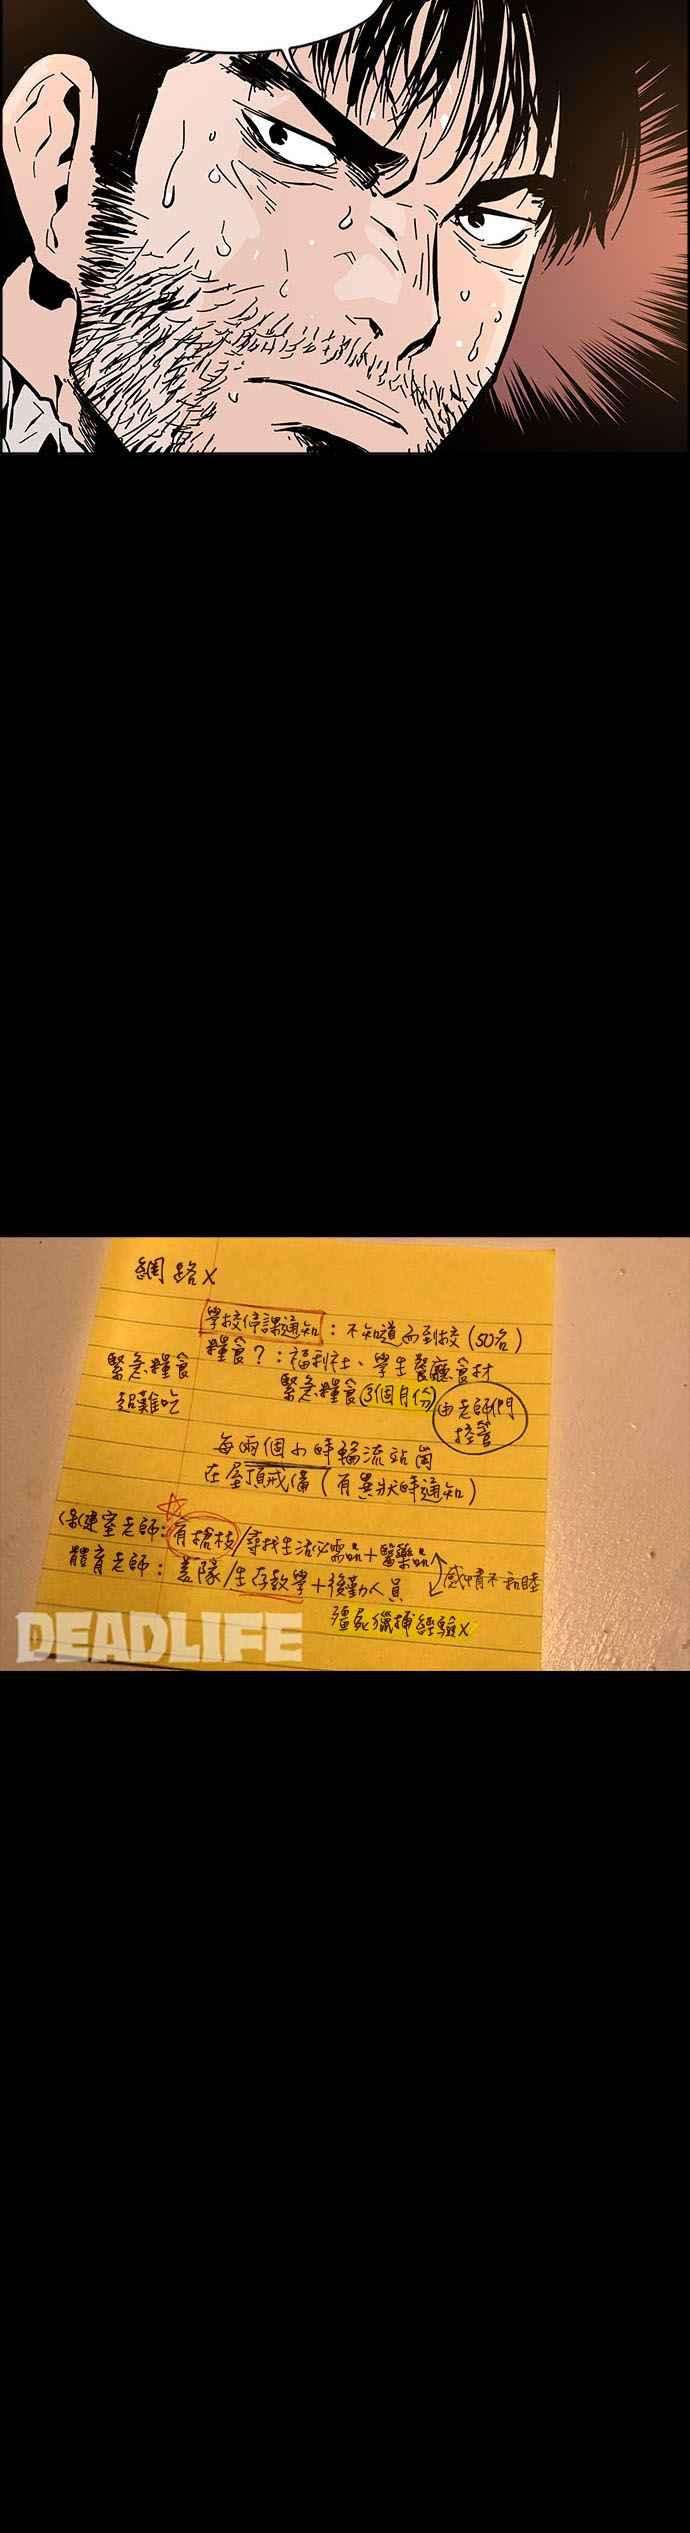 網路x
學校停課通知：不知道而到校（50名）
糧食？：福利社、學生餐廳食材
緊急糧食
超難吃
緊急糧食（3個月份）
由老師們
控管
每兩個小時輪流站崗
在屋頂戒備（有異狀時通知）
保健室老師：有槍枝/尋找生活必需品＋醫藥品
體育老師：善隊/生存教學＋後勤人員
感情不和睦
殭屍獵捕經驗x
DEADLIFE